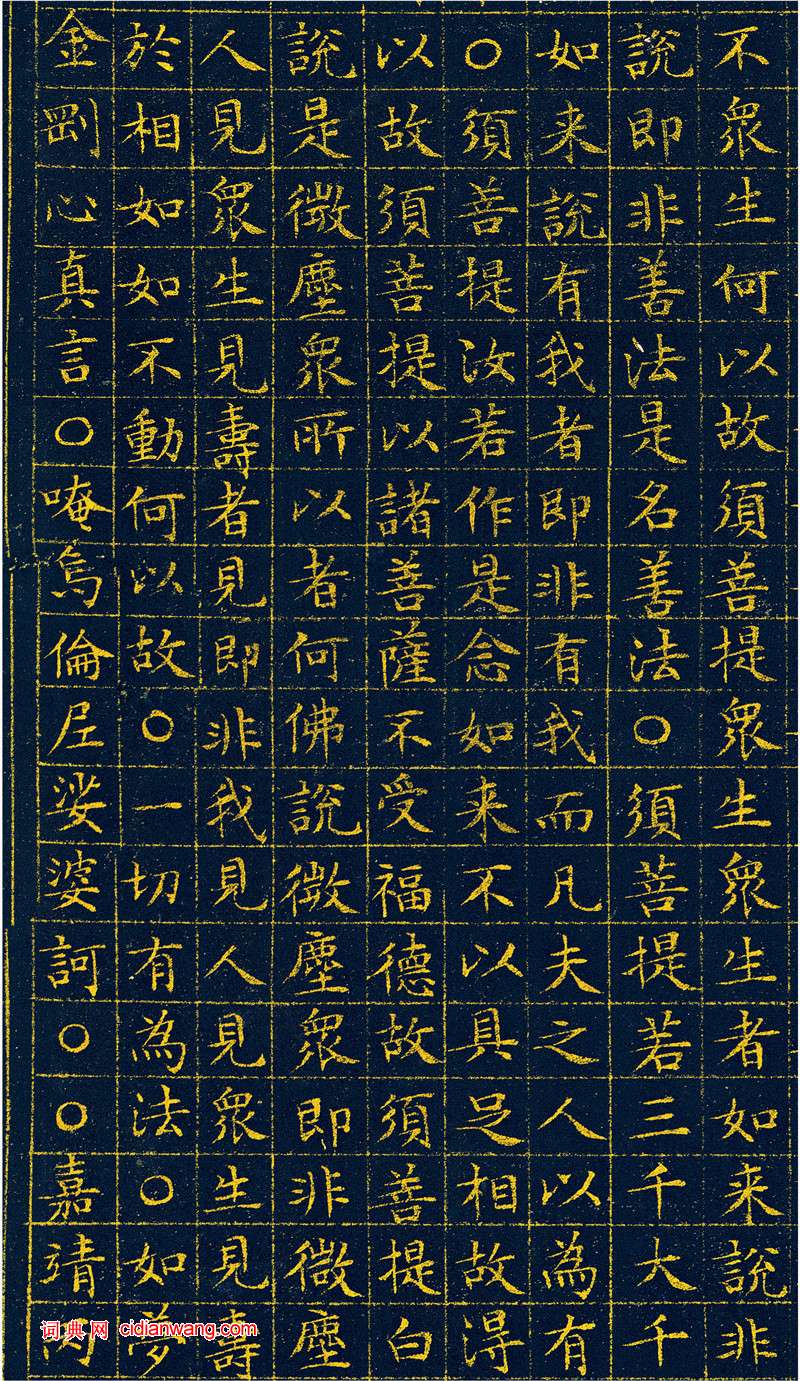 不眾生何以故須菩提眾生眾生者如来說非
說即非善法是名善法〇須菩提若三千大千
如来說有我者即非有我而凡夫之人以為有
〇須菩提汝若作是念如来不以具足相故得
以故須菩提以諸菩薩不受福德故須菩提白
說是微塵眾所以者何佛說微塵眾即非微塵
人見眾生見壽者見即非我見人見眾生見壽
於相如如不動何以故〇一切有為法〇如夢
金剛心真言〇唵烏倫尼娑婆訶〇〇嘉靖丙
词典网 cidianwang.com